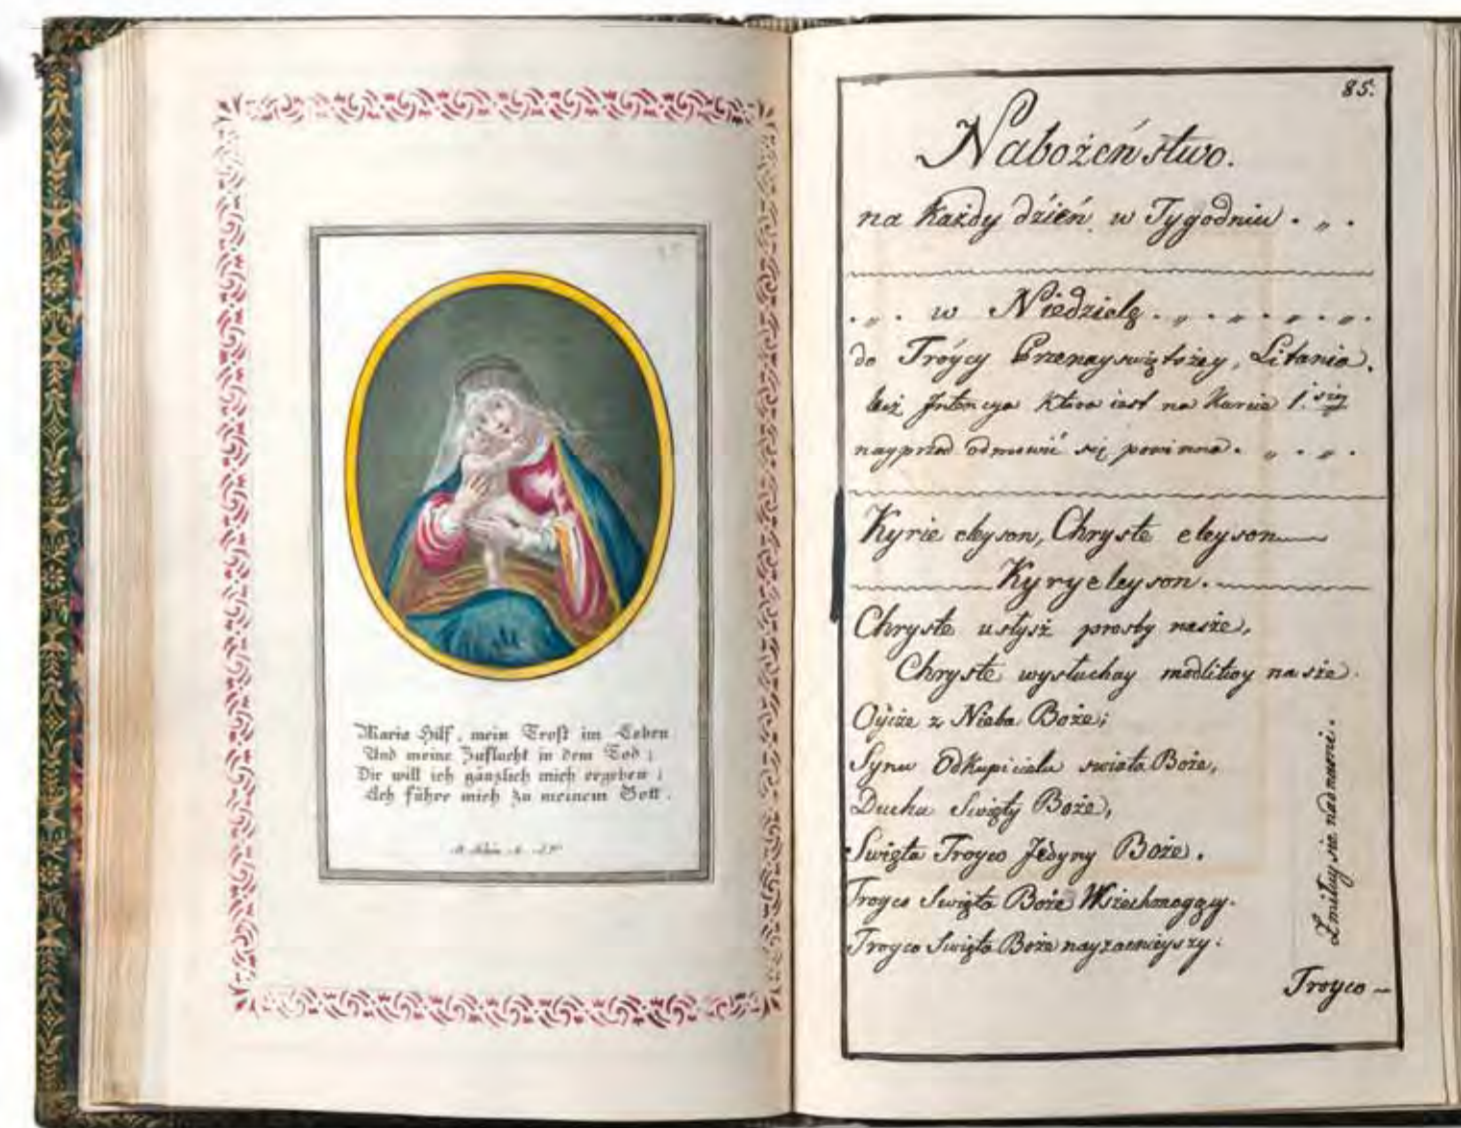 Maria Hilf, mein Trost im Leben
Und meine Zuflucht in dem Tod;
Dir will ich gänzlich mich ergeben;
Ach führe mich zu meinem Gott.
85.
Nabożeństwo.
na Każdy dzień w Tygodniu . „ .
. „ . w Niedzielę . „ . „ . „ . „ .
do Tróycy Przenayświętszey, Litania.
Intencya Ktora iest na Karcie 1.
nayprzod odmowić się powinna. „ . „ .
Kyrie eleyson, Chryste eleyson
Kyryeleyson.
Chryste usłysz prosby nasze,
Chryste wysłuchay modlitwy nasze.
Oycze z Nieba Boże;
Synu Odkupicielu swiata Boże,
Duchu Swięty Boże,
Swięta Troyco Jedyny Boże.
Troyco Swięta Boże Wszechmogący.
Troyco Swięta Boże nayzacnieyszy.
Zmiłuy sie nad nami.
Troyco –